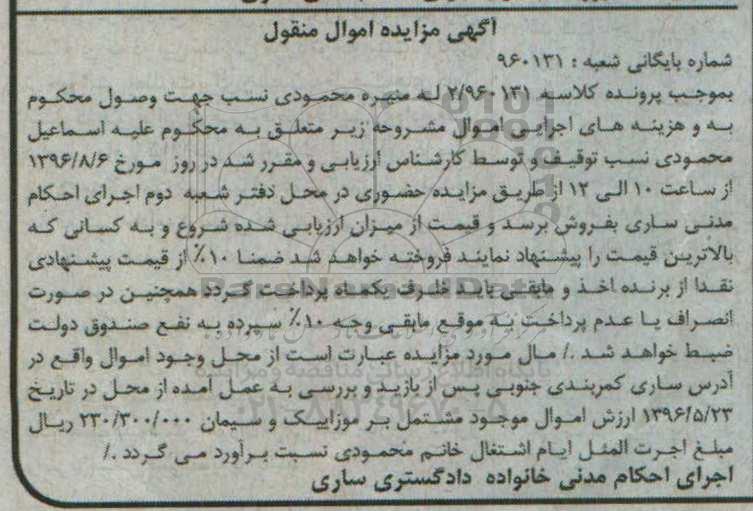 آگهی مزایده اموال منقول
شماره بایگانی شعبه : ۹۶۰۱۳۱
بموجب پرونده کلاسه ۲/۹۶۰۱۳۱ له منیره محمودی نسب جهت وصول محکوم
به و هزینه های اجرایی اموال مشروحه زیر متعلق به محکوم علیه اسماعیل
محمودی نسب توقیف و توسط کارشناس ارزیابی و مقرر شد در روز مورخ ۱۳۹۶/۸/۶
از ساعت ۱۰ الی ۱۲ از طریق مزایده حضوری در محل دفتر شعبه دوم اجرای احکام
مدنی ساری بفروش برسد و قیمت از میزان ارزیابی شده شروع و به کسانی که
بالاترین قیمت را پیشنهاد نمایند فروخته خواهد شد ضمنا ۱۰٪ از قیمت پیشنهادی
نقدا از برنده اخذ و مابقی باید ظرف یکماه پرداخت گردد همچنین در صورت
انصراف یا عدم پرداخت به موقع مابقی وجه ۱۰٪ سپرده به نفع صندوق دولت
ضبط خواهد شد ./ مال مورد مزایده عبارت است از محل وجود اموال واقع در
آدرس ساری کمربندی جنوبی پس از بازید و بررسی به عمل آمده از محل در تاریخ
۱۳۹۶/۵/۲۳ ارزش اموال موجود مشتمل بر موزاییک و سیمان ۲۳۰/۳۰۰/۰۰۰ ریال
مبلغ اجرت المثل ایام اشتغال خانم محمودی نسبت برآورد می گردد ./
اجرای احکام مدنی خانواده دادگستری ساری
ParsNamadData